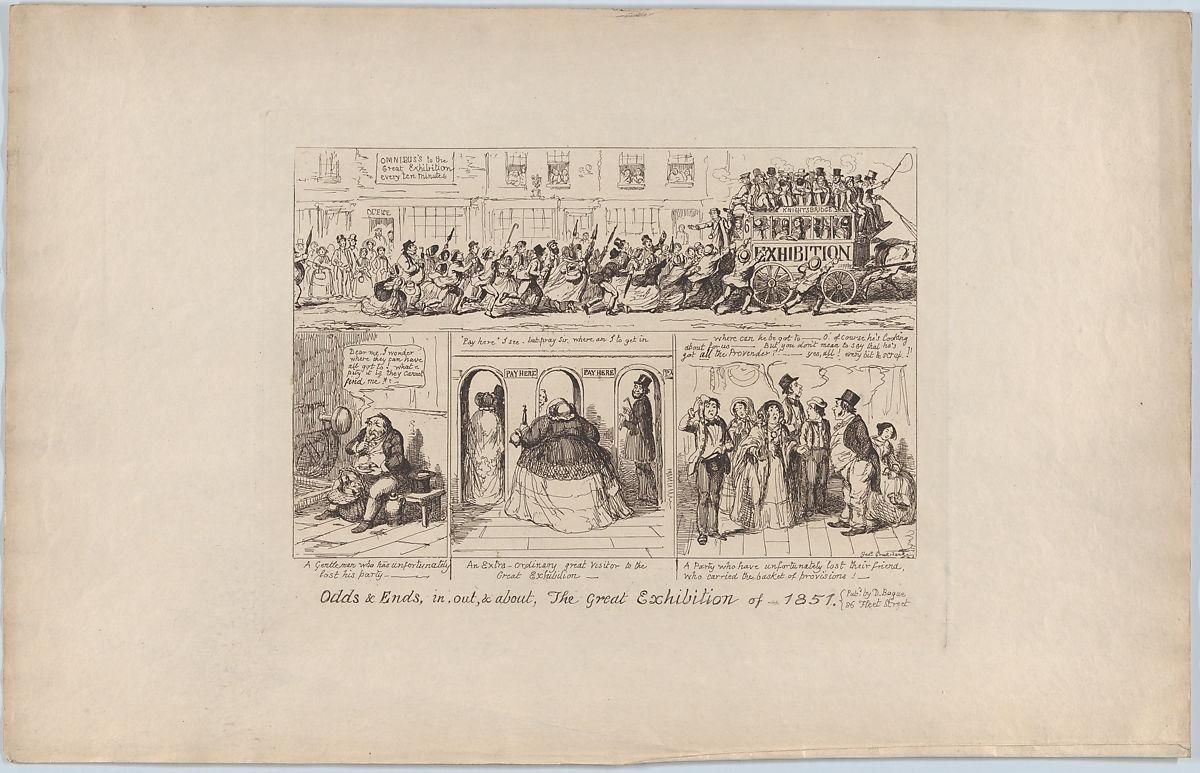 OMNIBUS'S to the
Great Exhibition
every ten minutes
KNIGHTSBRIDGE
EXHIBITION
Dear me, I wonder
where they can have
all got to! what a
pity it is they cannot
find me!!!
"Pay here" I see - but pray sir, where am I to get in
PAY HERE
PAY HERE
where can he be got to — O! of course he's looking
about for us — But, you don't mean to say that he's
got all the Provender!! — yes, all! every bit & scrap!!
Geo. Cruikshank
A Gentleman who has unfortunately
lost his party —
An Extra-ordinary great Visitor to the
Great Exhibition —
A Party who have unfortunately lost their friend,
who carried the basket of provisions! —
Odds & Ends, in, out, & about, The Great Exhibition of - 1851.
Pubd. by D. Bogue
86 Fleet Street